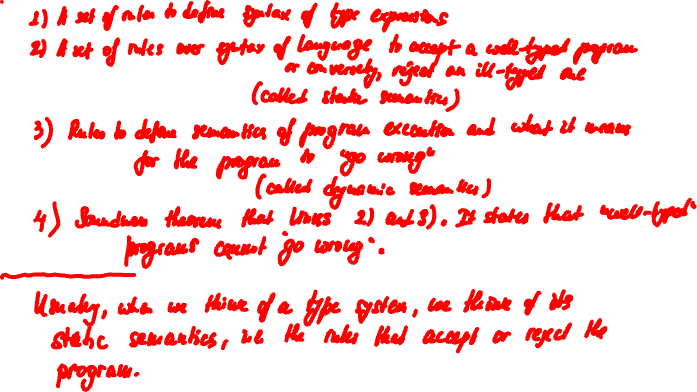 1) A set of rules to define syntax of type expressions
2) A set of rules over syntax of language to accept a well-typed program
or conversely, reject an ill-typed one
(called static semantics)
3) Rules to define semantics of program execution and what it means
for the program to "go wrong"
(called dynamic semantics)
4) Soundness theorem that links 2) and 3). It states that "well-typed"
programs cannot "go wrong".
Usually, when we think of a type system, we think of its
static semantics, i.e. the rules that accept or reject the
program.